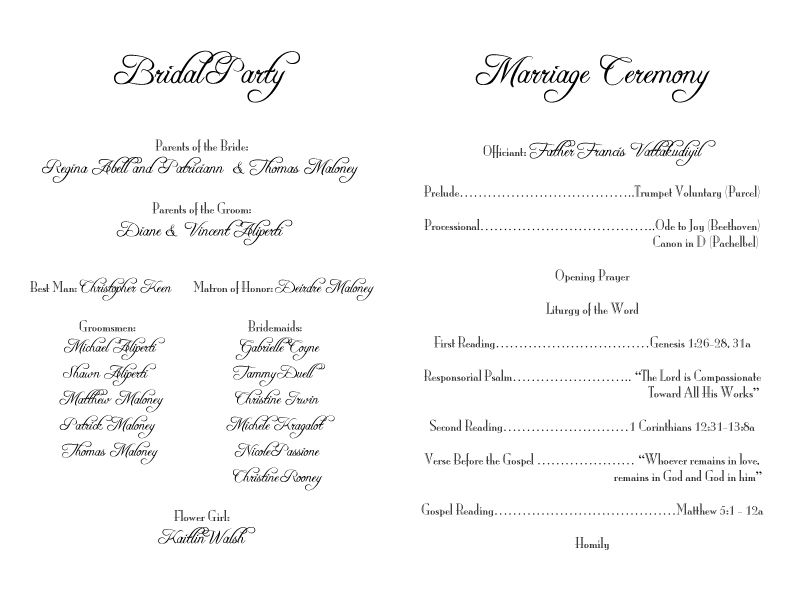 Bridal Party
Parents of the Bride:
Regina Abell and Patriciann & Thomas Maloney
Parents of the Groom:
Diane & Vincent Aliperti
Best Man: Christopher Keen
Matron of Honor: Deirdre Maloney
Groomsmen:
Michael Aliperti
Shawn Aliperti
Matthew Maloney
Patrick Maloney
Thomas Maloney
Bridemaids:
Gabrielle Coyne
Tammy Duell
Christine Irwin
Michele Kragalot
Nicole Passione
Christine Rooney
Flower Girl:
Kaitlin Walsh
Marriage Ceremony
Officiant: Father Francis Vattakudiyil
Prelude……………………………………..Trumpet Voluntary (Purcel)
Processional……………………………………..Ode to Joy (Beethoven)
Canon in D (Pachelbel)
Opening Prayer
Liturgy of the Word
First Reading…………………………………Genesis 1:26-28, 31a
Responsorial Psalm……………………….. “The Lord is Compassionate
Toward All His Works”
Second Reading…………………………1 Corinthians 12:31-13:8a
Verse Before the Gospel ………………… “Whoever remains in love,
remains in God and God in him”
Gospel Reading……………………………………Matthew 5:1 - 12a
Homily